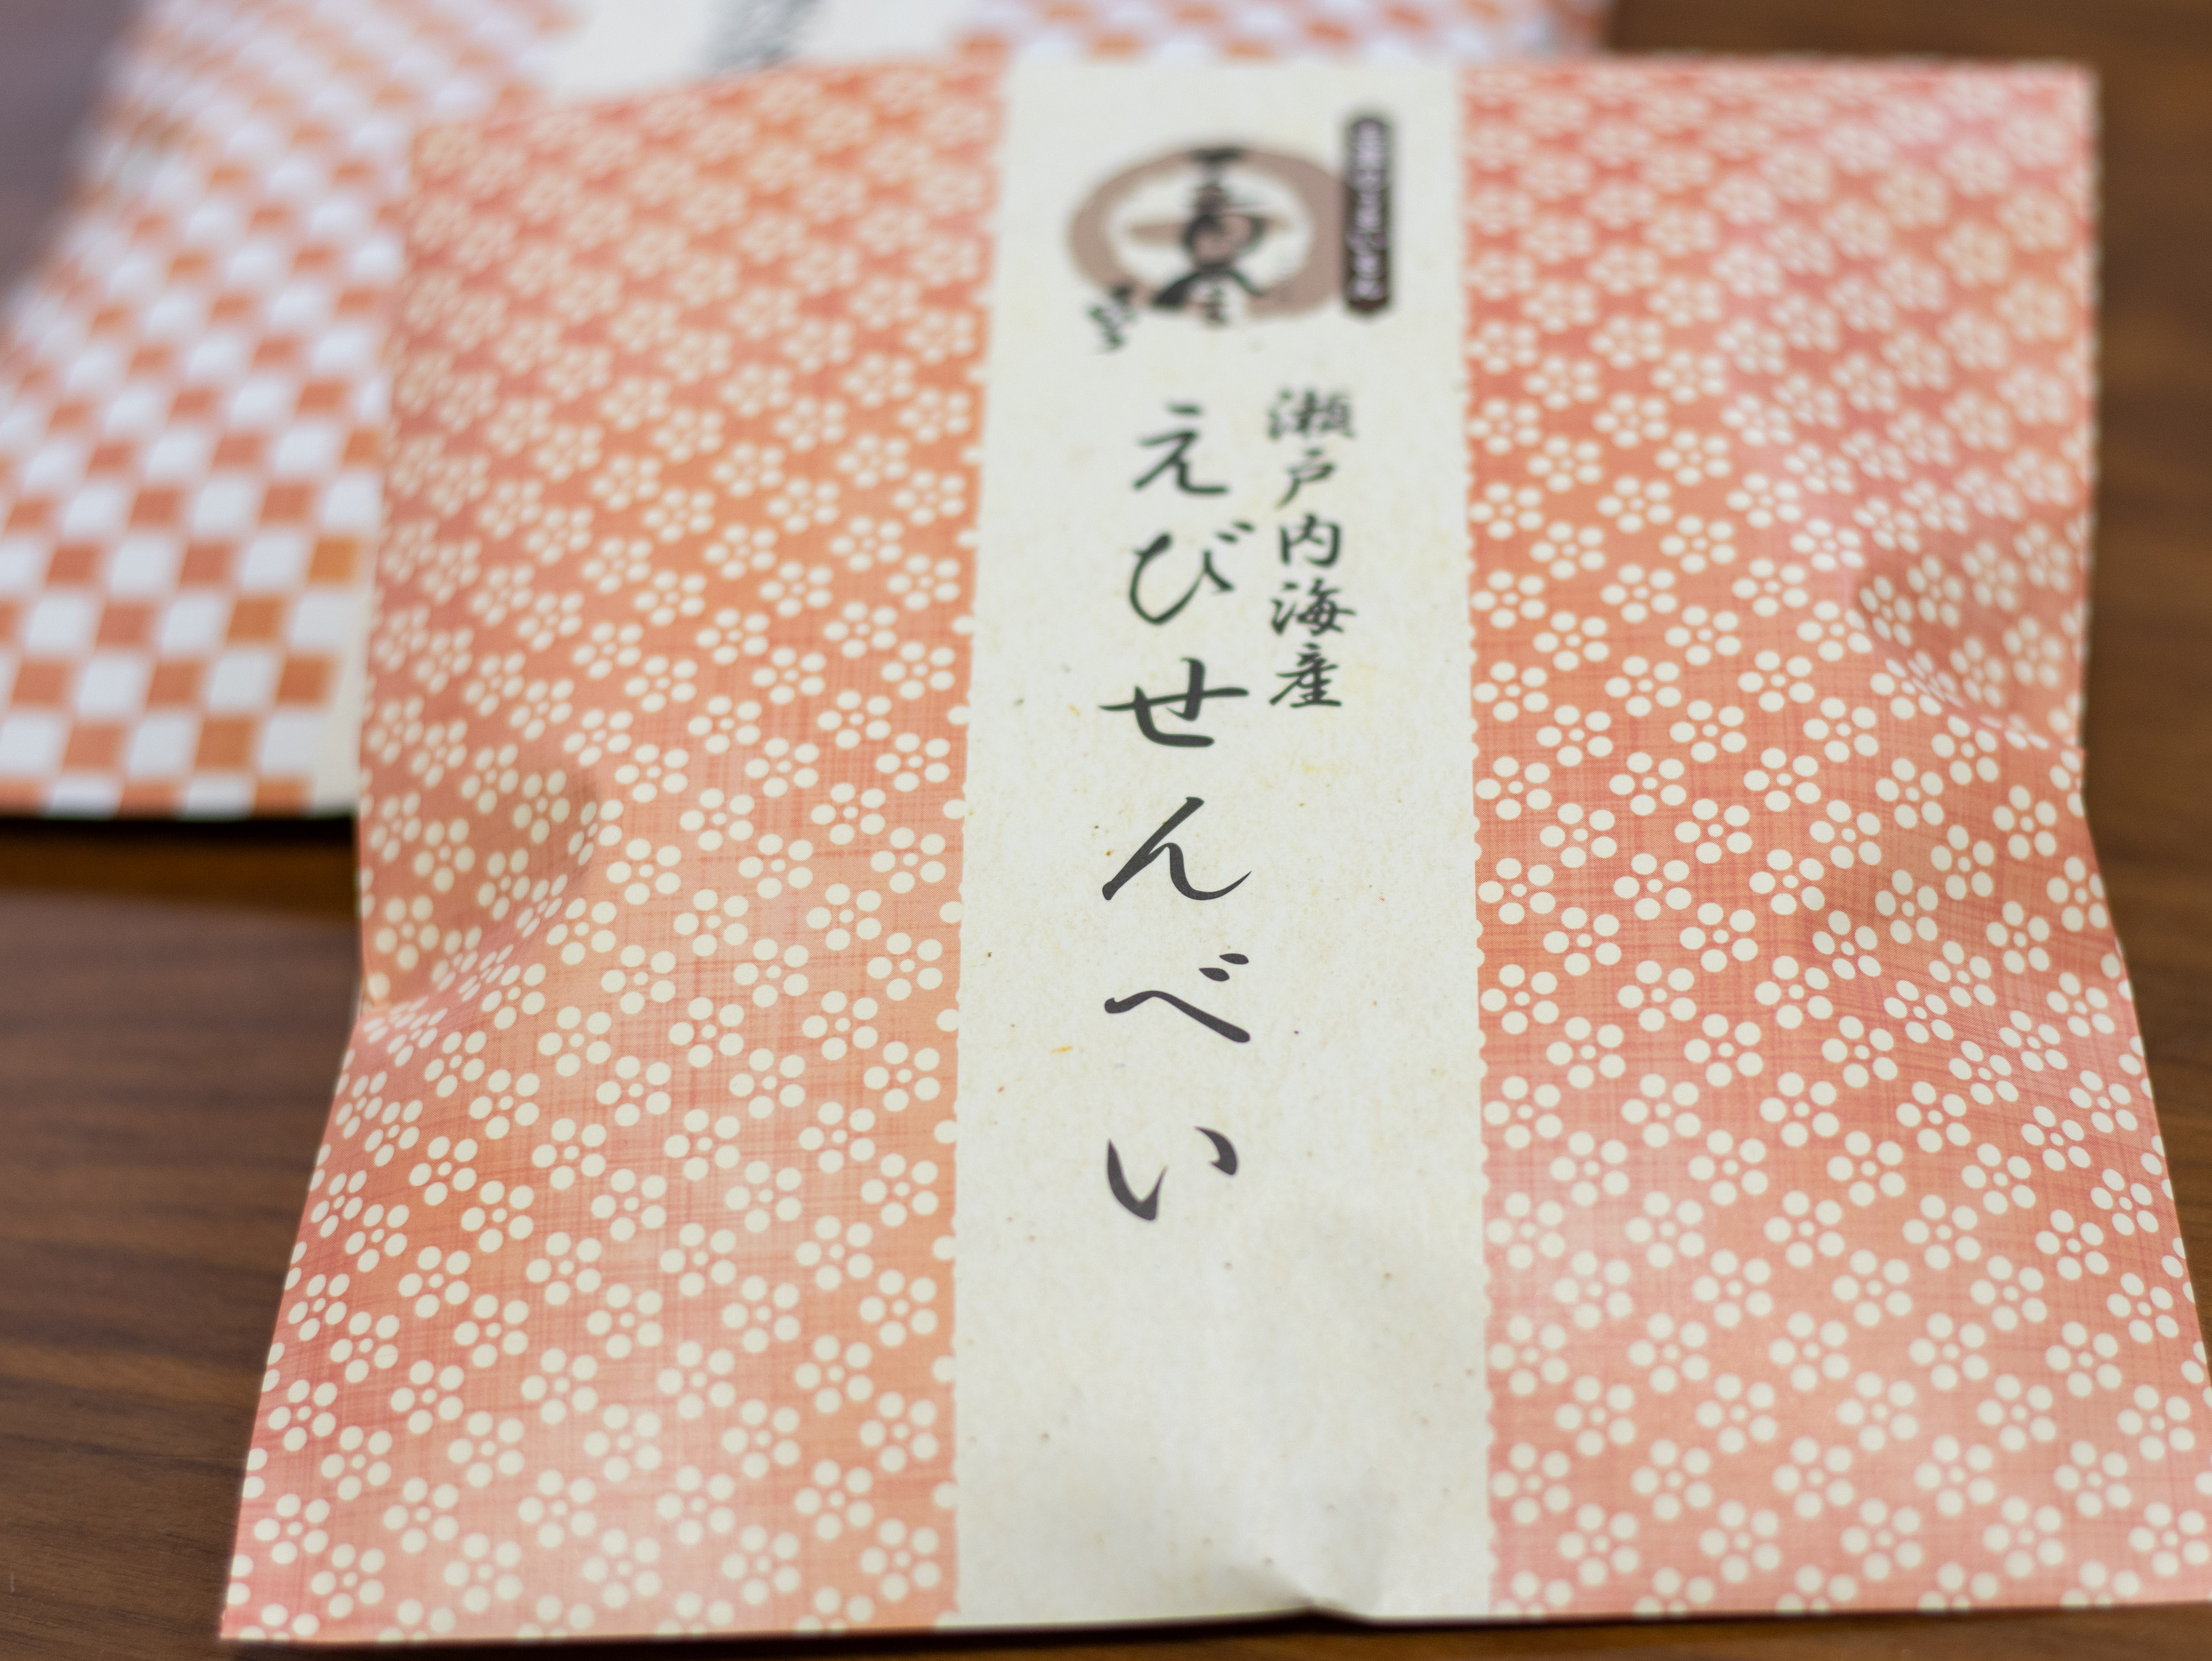 瀬戸内海産
えびせんべい